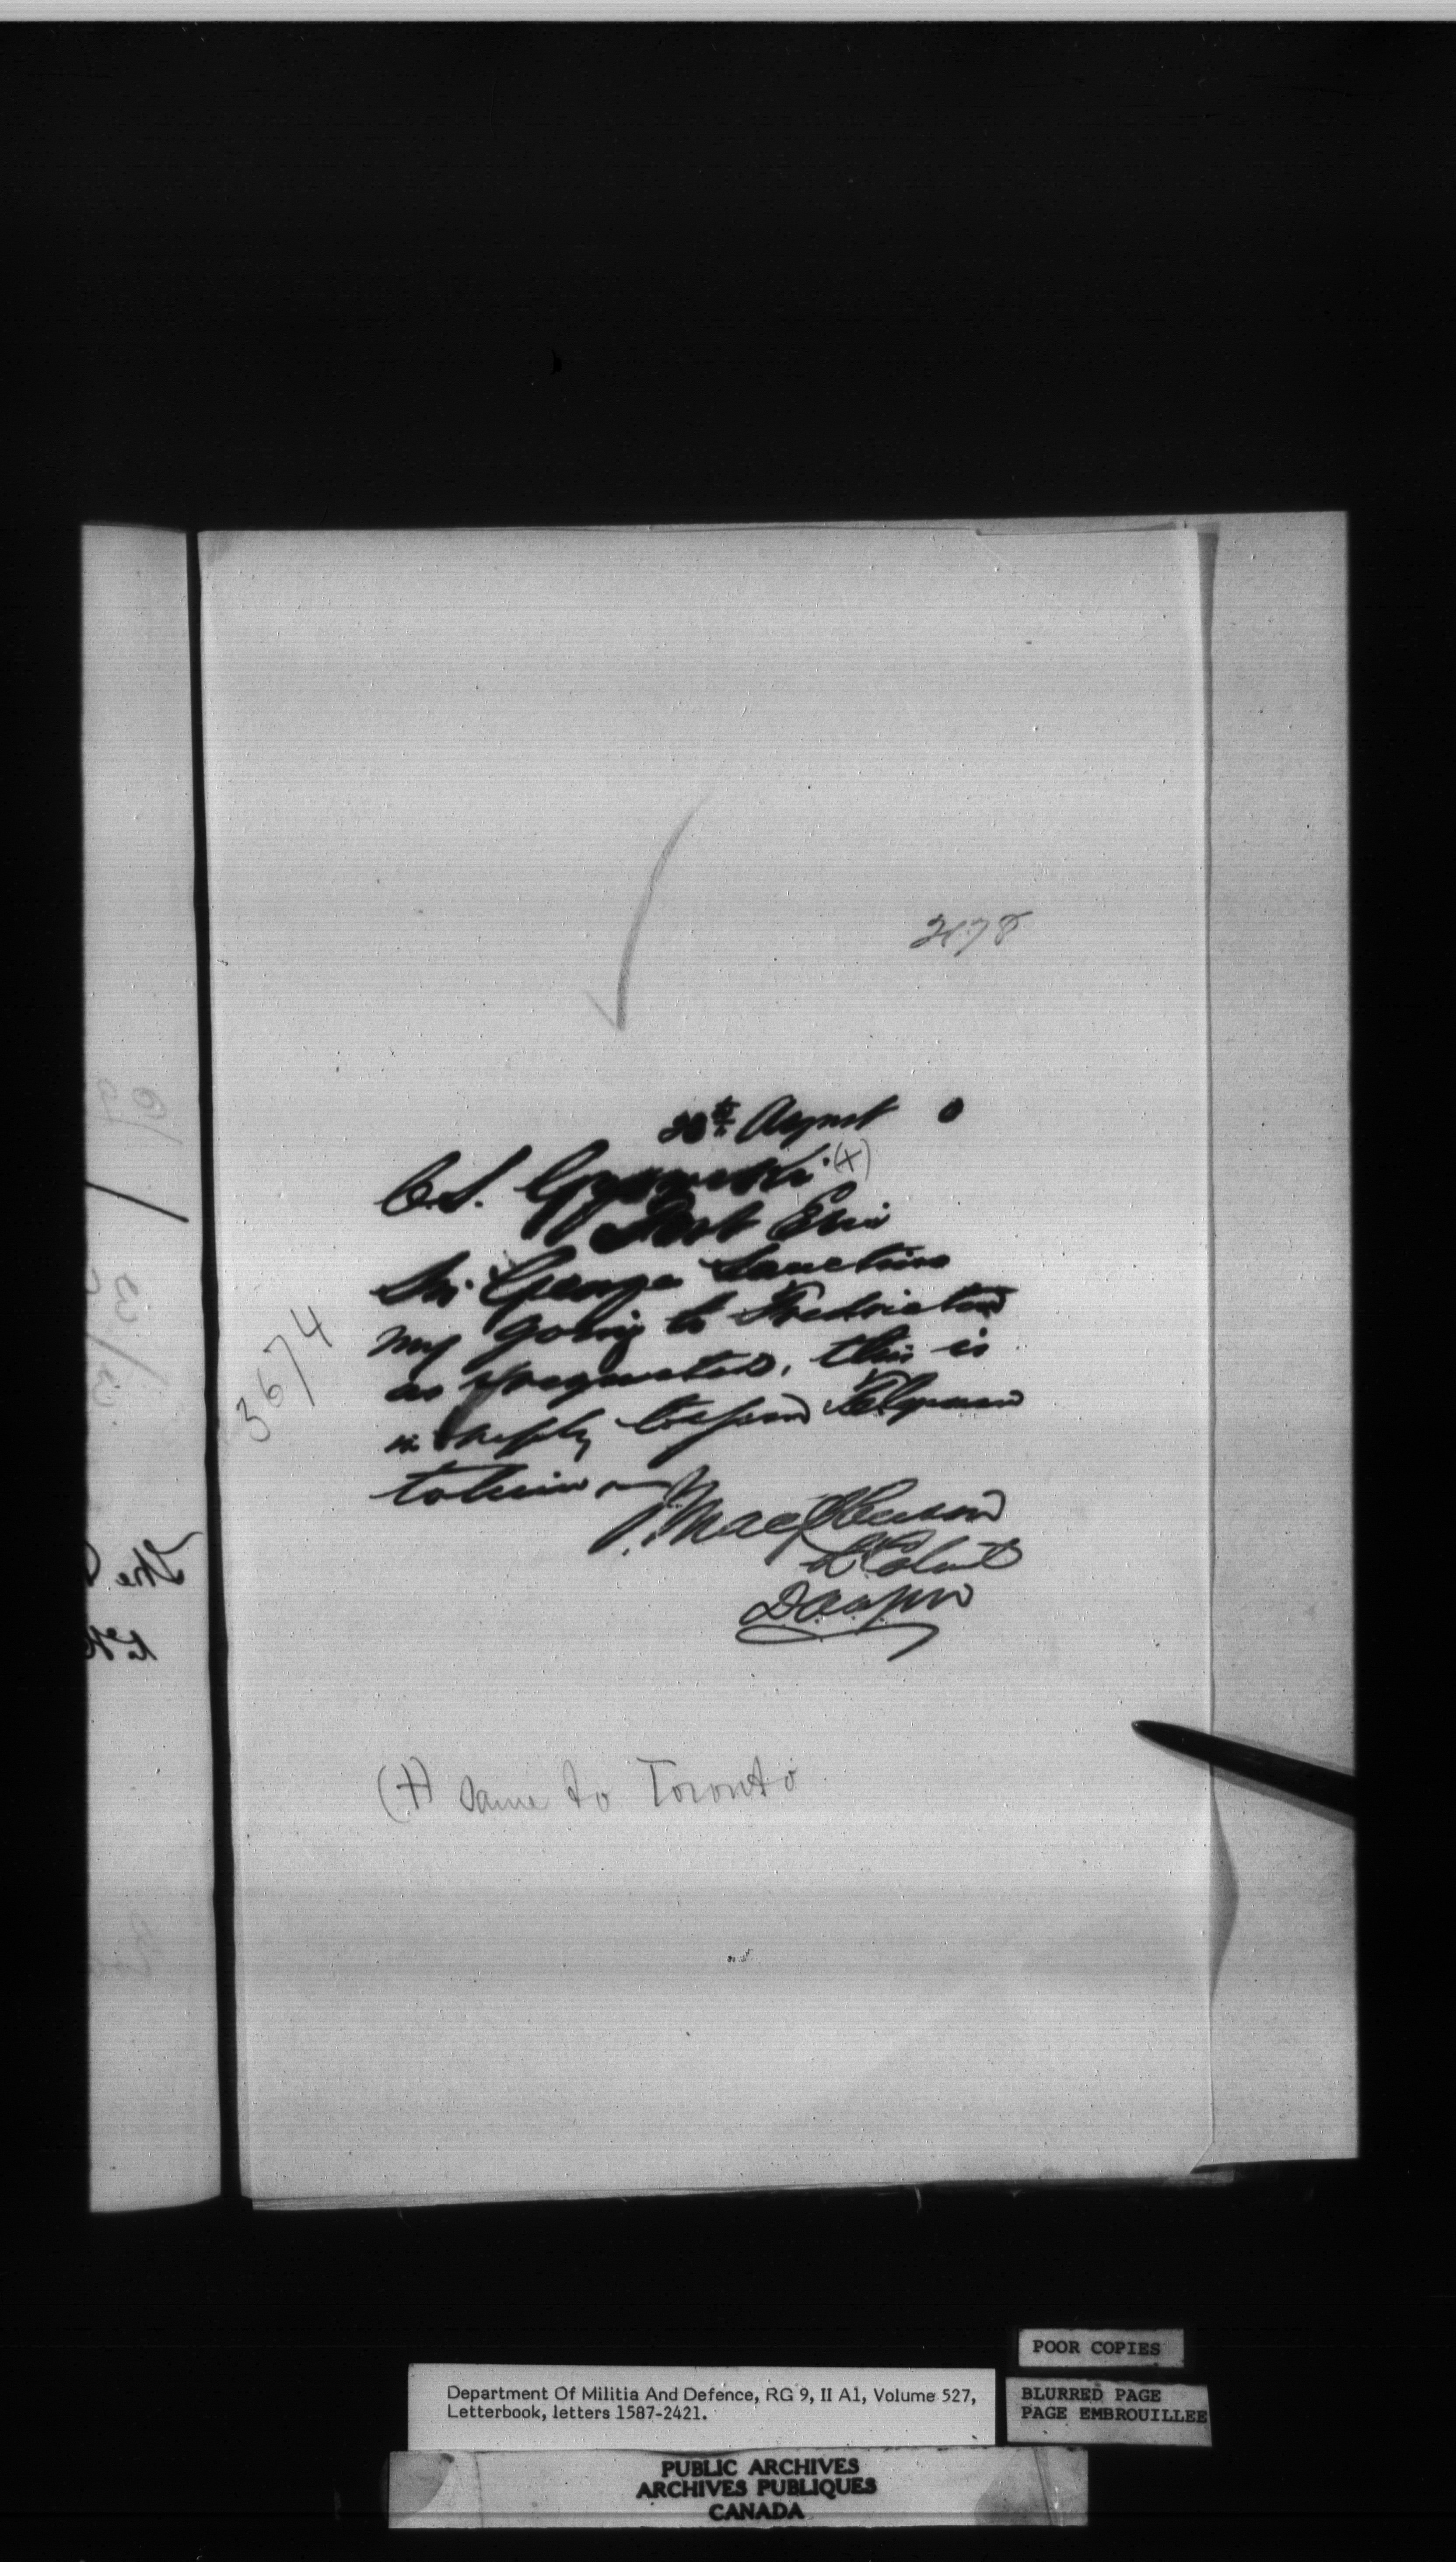 2178
28th August 0
C.S. Gzowski (+)
Fort Erie
Sir George Sanctions
my going to Fredricton
as requested, this is
in reply to your Telgram
to him —
J. Macpherson
Lt Colonel
3674
(+) Same to Toronto
The
POOR COPIES
BLURRED PAGE
PAGE EMBROUILLEE
Department Of Militia And Defence, RG 9, II A1, Volume 527,
Letterbook, letters 1587-2421.
PUBLIC ARCHIVES
ARCHIVES PUBLIQUES
CANADA